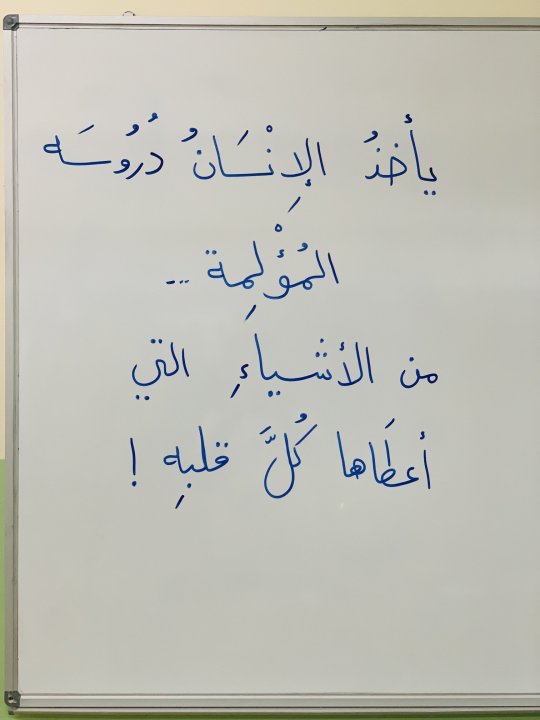 يأخذُ الإِنْسَانُ دُرُوسَه
المُؤْلِمة ...
من الأشياءِ التي
أعطَاها كُلَّ قلبهِ !